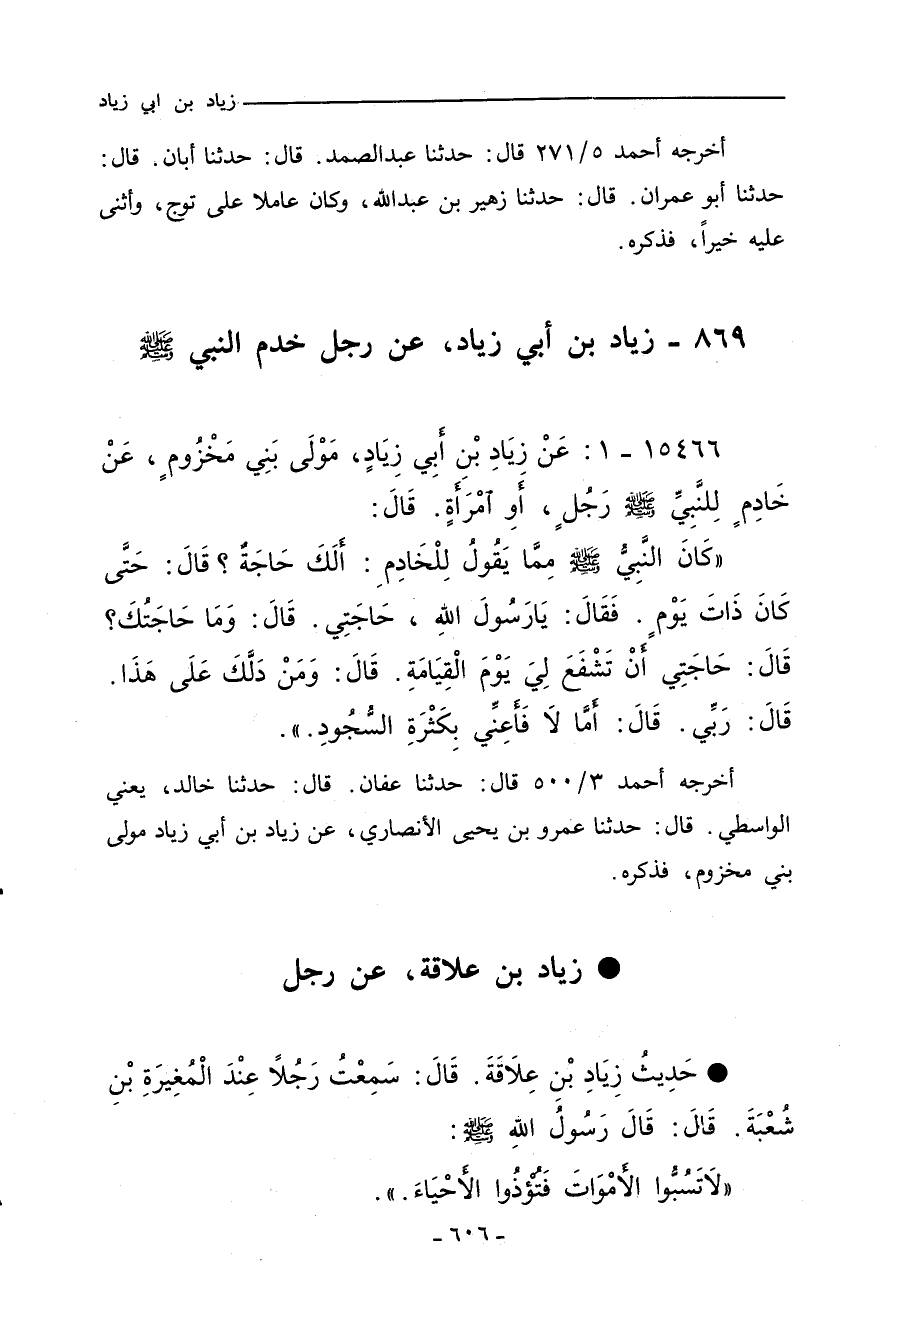 زياد بن ابي زياد
أخرجه أحمد ٢٧١/٥ قال: حدثنا عبدالصمد. قال: حدثنا أبان. قال:
حدثنا أبو عمران. قال: حدثنا زهير بن عبدالله، وكان عاملا على توج، وأثنى
عليه خيراً، فذكره.
٨٦٩ - زياد بن أبي زياد، عن رجل خدم النبي ﷺ
١٥٤٦٦ - ١: عَنْ زِيَادِ بْنِ أَبي زِيَادٍ، مَوْلَى بَنِي مَخْزُومٍ، عَنْ
خَادِمٍ لِلنَّبِيِّ ﷺ رَجُلٍ، أَوِ ٱمْرَأَةٍ. قَالَ:
«كَانَ النَّبِيُّ ﷺ مِمَّا يَقُولُ لِلْخَادِمِ: أَلَكَ حَاجَةٌ؟ قَالَ: حَتَّى
كَانَ ذَاتَ يَوْمٍ. فَقَالَ: يَارَسُولَ اللهِ، حَاجَتِي. قَالَ: وَمَا حَاجَتُكَ؟
قَالَ: حَاجَتِي أَنْ تَشْفَعَ لِيَ يَوْمَ الْقِيَامَةِ. قَالَ: وَمَنْ دَلَّكَ عَلَى هَذَا.
قَالَ: رَبِّي. قَالَ: أَمَّا لَا فَأَعِنِّي بِكَثْرَةِ السُّجُودِ.».
أخرجه أحمد ٥٠٠/٣ قال: حدثنا عفان. قال: حدثنا خالد، يعني
الواسطي. قال: حدثنا عمرو بن يحيى الأنصاري، عن زياد بن أبي زياد مولى
بني مخزوم، فذكره.
● زياد بن علاقة، عن رجل
● حَدِيثُ زِيَادِ بْنِ عِلَاقَةَ. قَالَ: سَمِعْتُ رَجُلاً عِنْدَ الْمُغِيرَةِ بْنِ
شُعْبَةَ. قَالَ: قَالَ رَسُولُ اللهِ ﷺ:
«لَاتَسُبُّوا الأَمْوَاتَ فَتُؤْذُوا الأَحْيَاءَ.».
- ٦٠٦ -